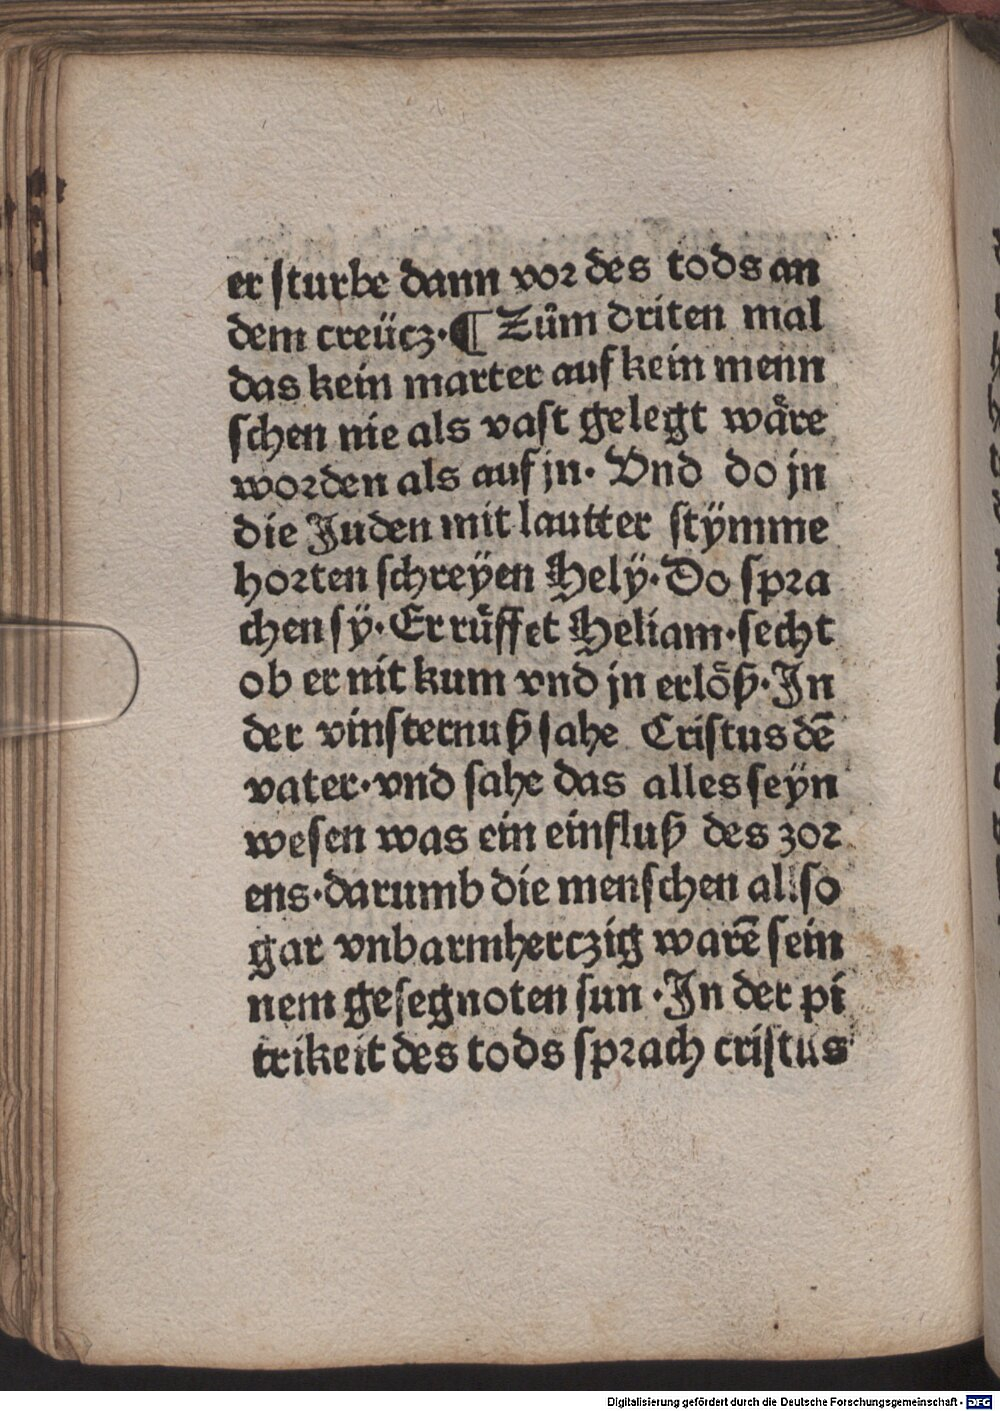 er ſturbe dann vor des tods an
dem creücz·¶ Zům driten mal
das kein marter auf kein menn
ſchen nie als vaſt gelegt wåre
worden als auf jn· Vnd do jn
die Juden mit lautter ſtÿmme
horten ſchreÿen Helÿ· Do ſpra
chen ſÿ· Er ruͤffet Heliam·ſecht
ob er nit kum vnd jn erlöß· In
der vinſternuß ſahe Criſtus dē
vater·vnd ſahe das alles ſeÿn
weſen was ein einfluß des zor
ens·darumb die menſchen allſo
gar vnbarmherczig warē ſein
nem geſegnoten ſun · In der pi
trikeit des tods ſprach criſtus
Digitalisierung gefördert durch die Deutsche Forschungsgemeinschaft - DFG